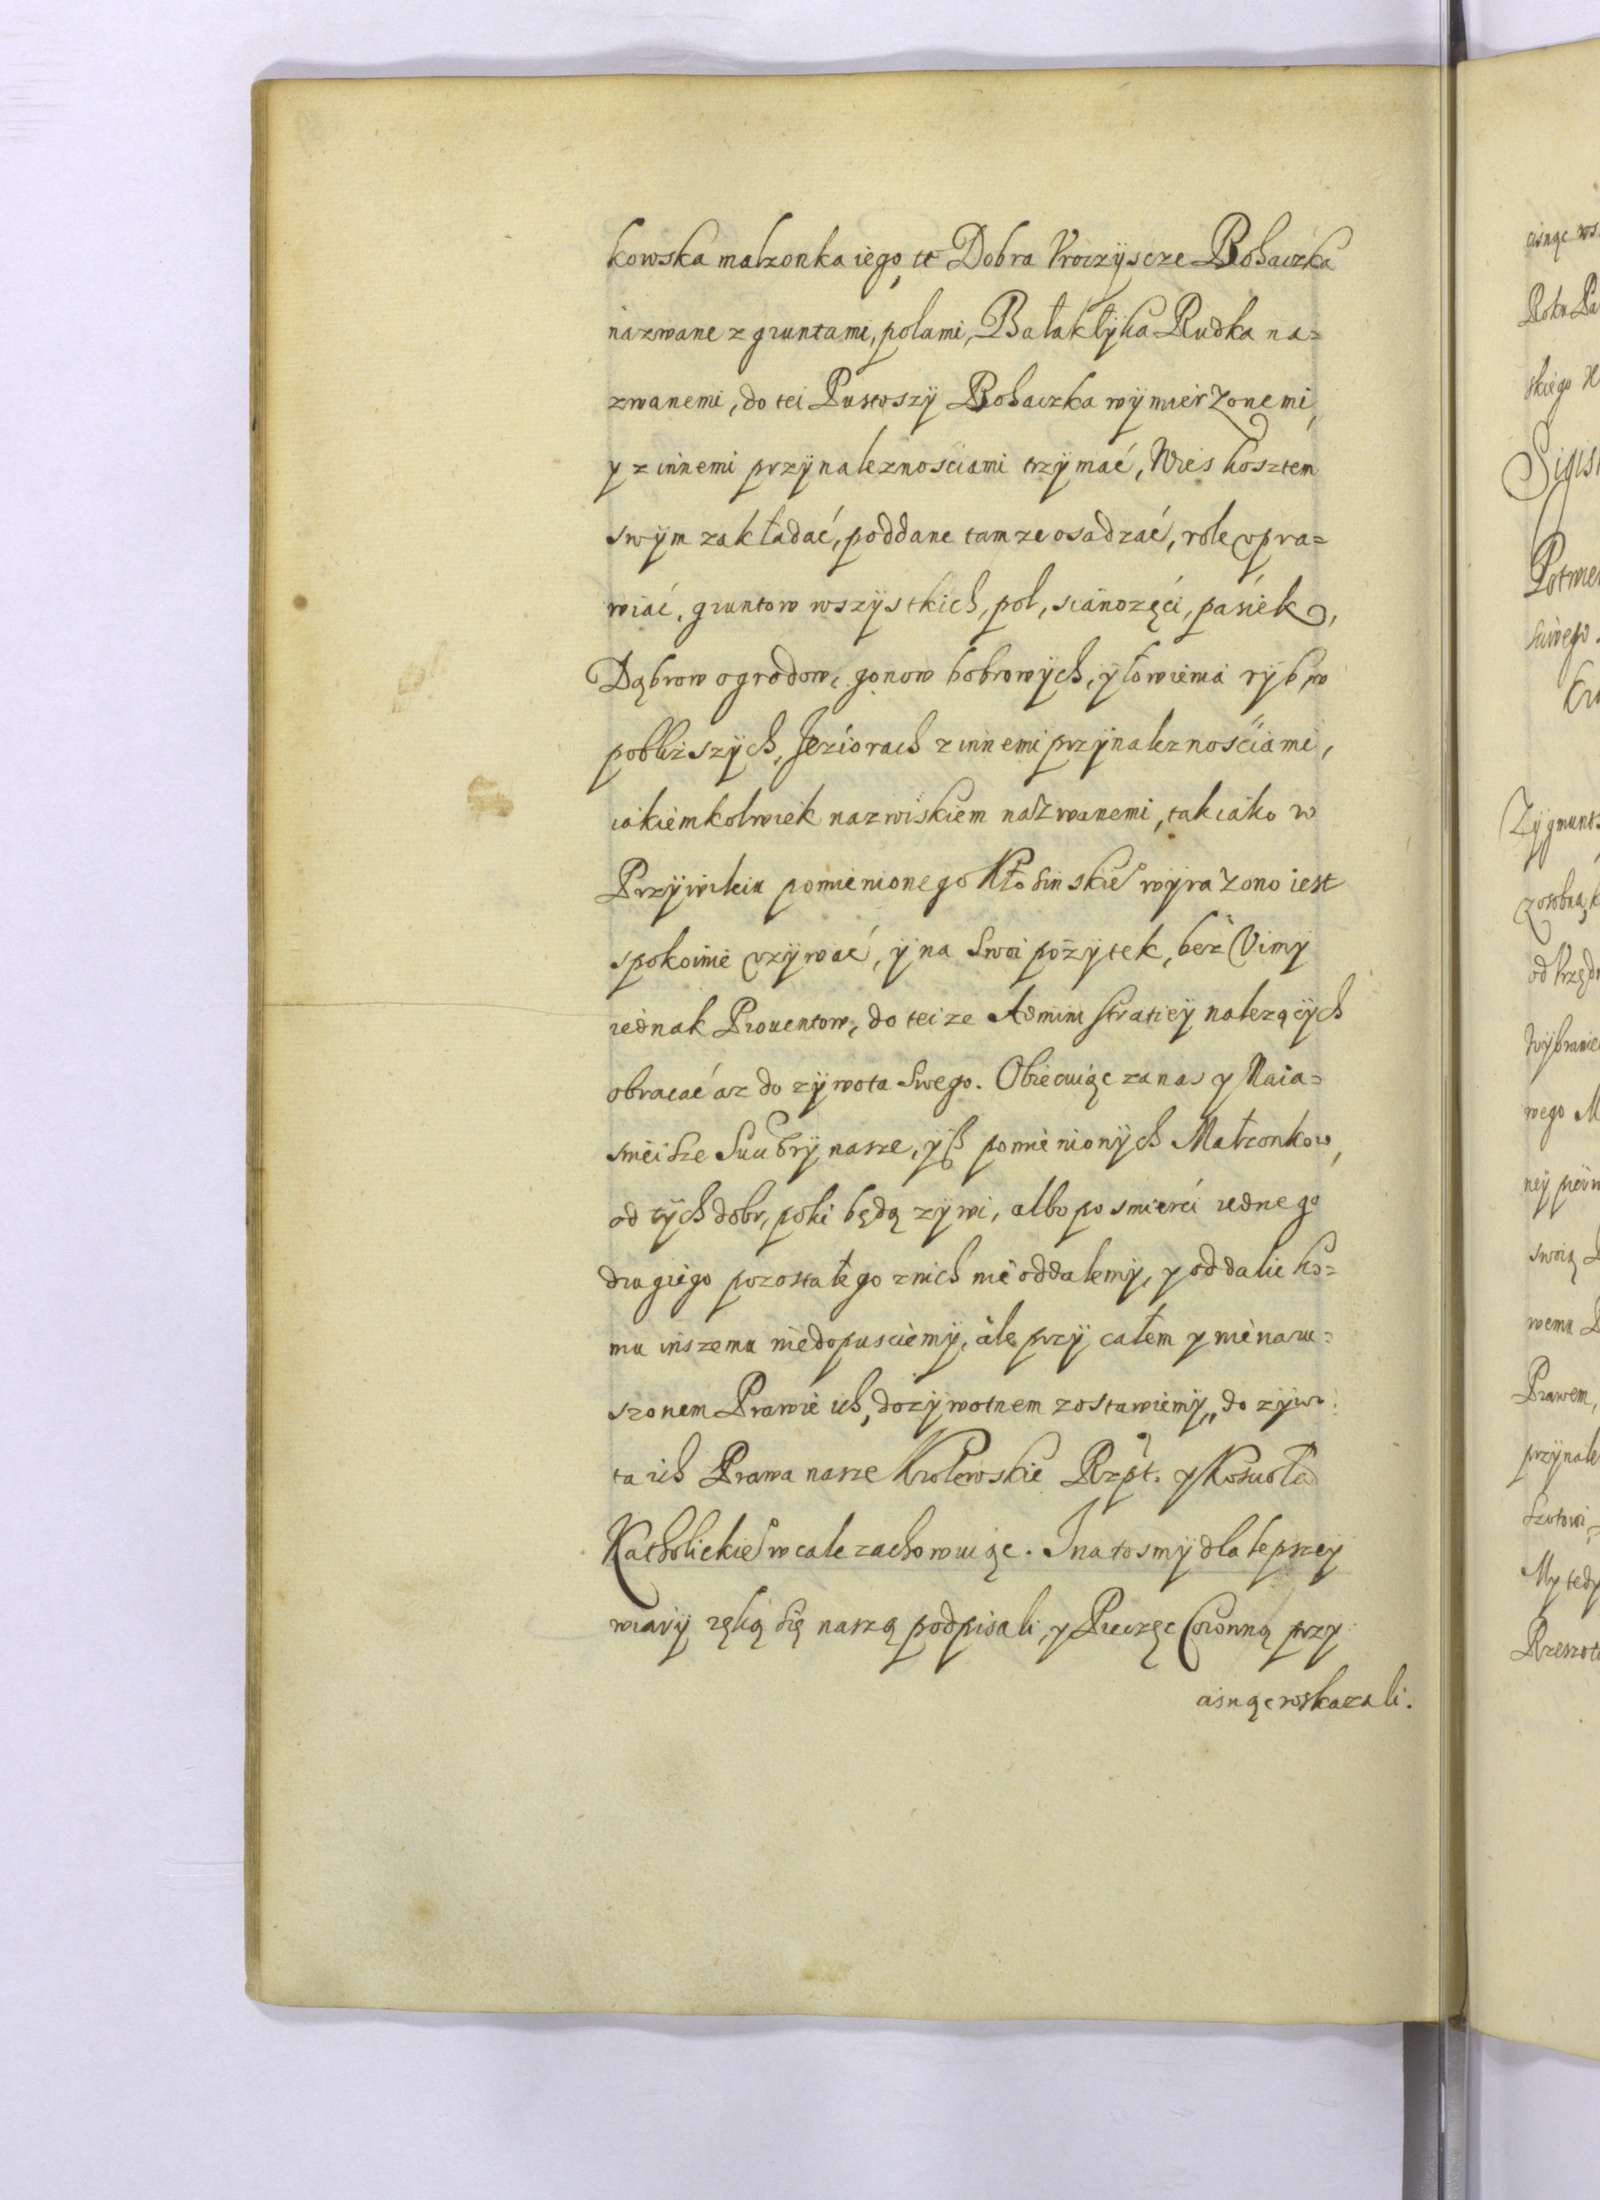 kowska małzonka iego, te Dobra Vroczyscze Bohaczka
nazwane z gruntami, polami, Bałaklyka Rudka na=
zwanemi, do tei Pustoszy Bohaczka wymierzonemi,
y z innemi przynaleznosciami trzymać, Wies kosztem
swym zakładać, poddane tamze osadzać, role vpra=
wiać, gruntow wszystkich, pol, sianozęći, pasiek,
Dąbrow ogrodow, gonow bobrowych, y łowienia ryb, w
pobliższych Jeziorach z innemi przynaleznośćiami,
iakiemkolwiek nazwiskiem nazwanemi, tak iako w
Przywileiu pomienionego Kłosinskie° wyrazono iest
spokoinie vzywać, y na swoi pożytek, bez Vimy
iednak Prouentow, do teize Administratiey nalezących
obracać az do zywota swego. Obiecuiąc za nas y Naia=
snieisze Succry nasze, yß pomienionych Małzonkow,
od tych dobr, poki będą zywi, albo po smierći iednego
drugiego pozostałego z nich nie oddalemy, y oddalic ko=
mu inszemu niedopusciemy, ale przy całem y nienaru=
szonem Prawie ich, dozywotnem zostawiemy, do zywo:
ta ich Prawa nasze Krolewskie Rzpt. y Koscioła
Katholickie° w cale zachowuiąc. I na tosmy dla lepszey
wiary ręką się naszą podpisali, y Pieczęc Coronną przy
cisnąc roskazali.
cisnąc
Roku
skiego
Potwier
Zygmunt
wego M
swoią
wemu
Prawem,
My tedy